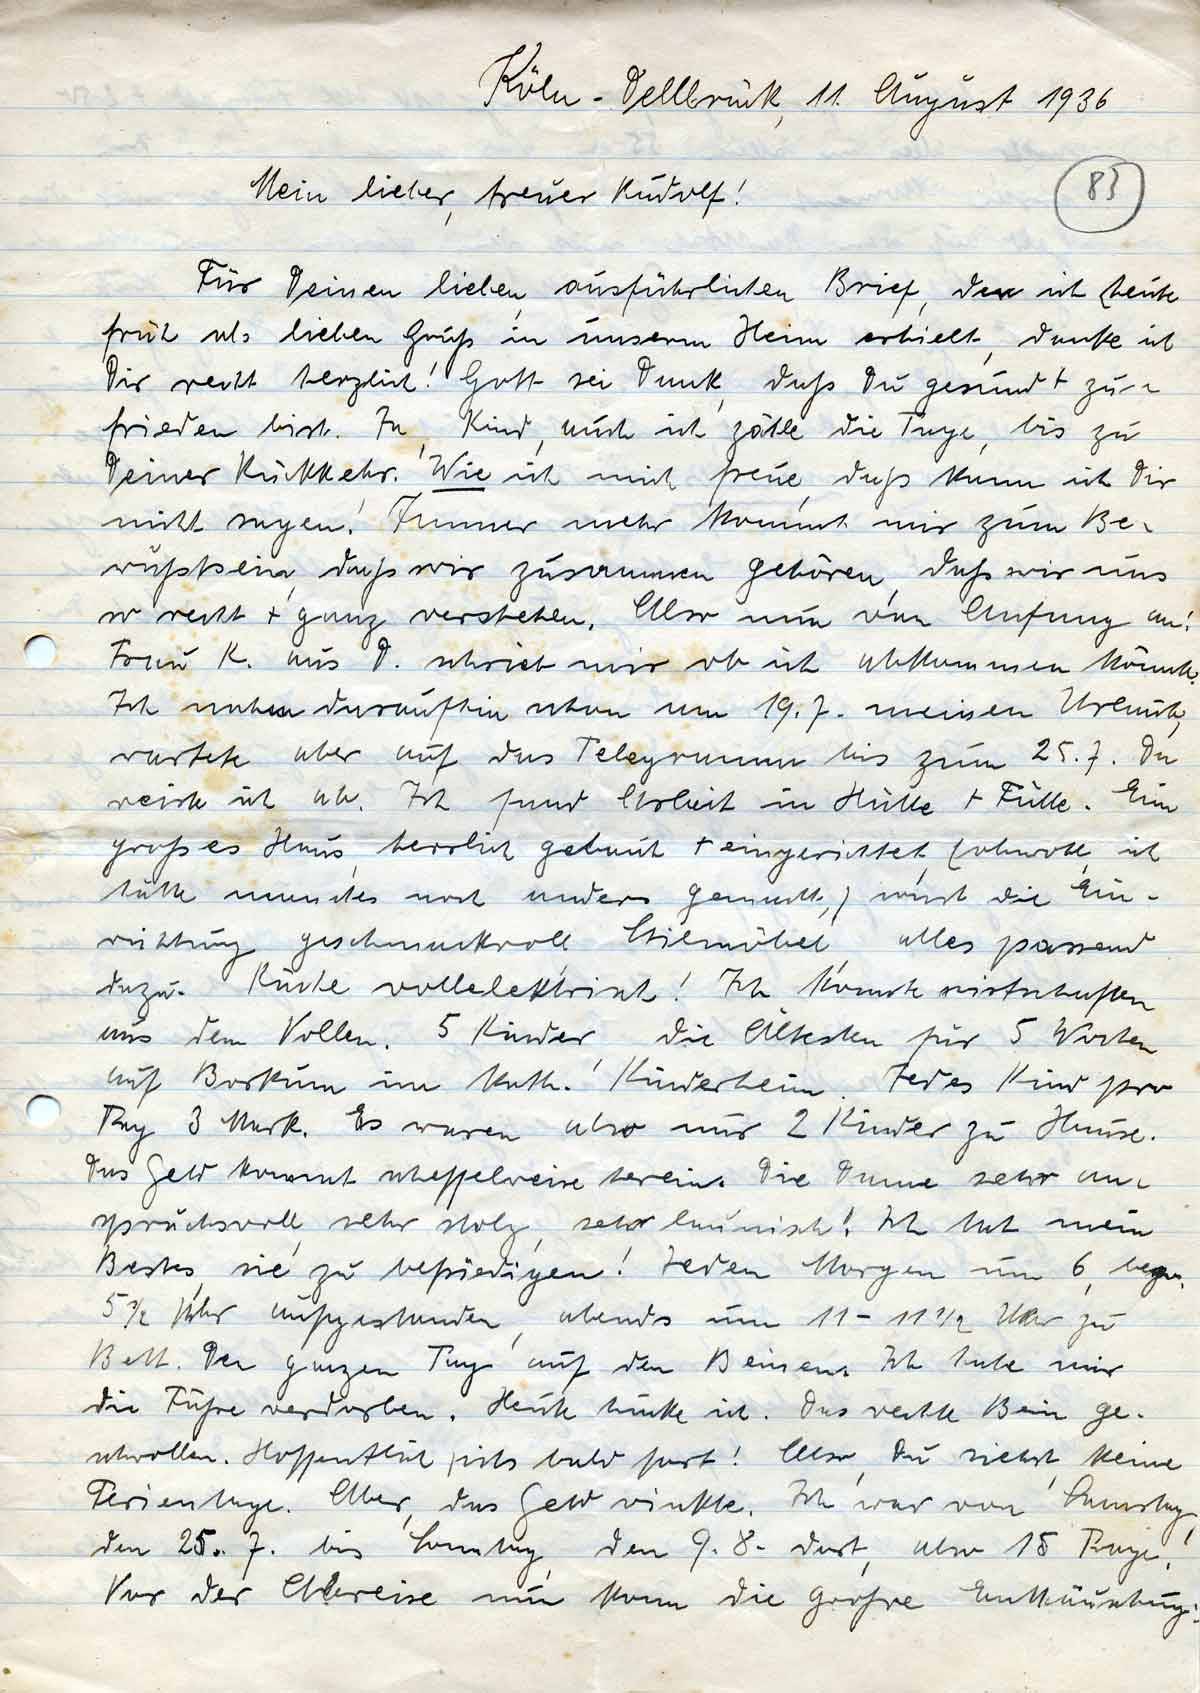 Köln-Dellbrück, 11. August 1936
83
Mein lieber, treuer Rudolf!
Für Deinen lieben, ausführlichen Brief, den ich heute
früh als lieben Gruß in unserm Heim erhielt, danke ich
Dir recht herzlich! Gott sei Dank, daß Du gesund + zu-
frieden bist. Ja, Kind, auch ich zähle die Tage, bis zu
Deiner Rückkehr. Wie ich mich freue, daß kann ich Dir
nicht sagen! Immer mehr kommt mir zum Be-
wußtsein, daß wir zusammen gehören, daß wir uns
so recht + ganz verstehen. Also nun von Anfang an!
Frau K. aus D. schrieb mir ob ich abkommen könnte.
Ich nahm daraufhin schon am 19.7. meinen Urlaub,
wartete aber auf das Telegramm bis zum 25.7. Da
reiste ich ab. Ich fand Arbeit in Hülle + Fülle. Ein
großes Haus, herrlich gebaut + eingerichtet, (obwohl, ich
hätte manches noch anders gemacht,) die Ein-
richtung geschmackvoll, Stilmöbel, alles passend
dazu. Küche vollelektrisch! Ich konnte wirtschaften
aus dem Vollen. 5 Kinder, die Ältesten für 5 Wochen
auf Borkum im kath. Kinderheim. Jedes Kind pro
Tag 3 Mark. Es waren also nur 2 Kinder zu Hause.
Das Geld kommt scheffelweise herein. Die Dame sehr an-
spruchsvoll, sehr stolz, sehr launisch! Ich tat mein
Bestes, sie zu befriedigen! Jeden Morgen um 6, bezw.
5½ Uhr aufgestanden, abends um 11-11½ Uhr zu
Bett. Den ganzen Tag auf den Beinen. Ich habe mir
die Füße verdorben. Heute hinke ich. Das rechte Bein ge-
schwollen. Hoffentlich ists bald fort! Also, Du siehst, keine
Ferientage. Aber, das Geld winkte. Ich war von Samstag,
den 25.7. bis Sonntag, den 9.8. dort, also 15 Tage!
Vor der Abreise nun kam die große Enttäuschung: